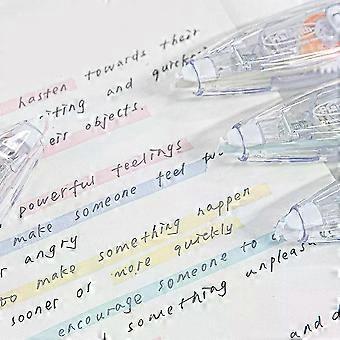 hasten towards their
iting and quicker
eir objects.
powerful feelings
make someone feel
r angry
oo make something happen
sooner or more quickly
encourage someone to
something unpleas
and d